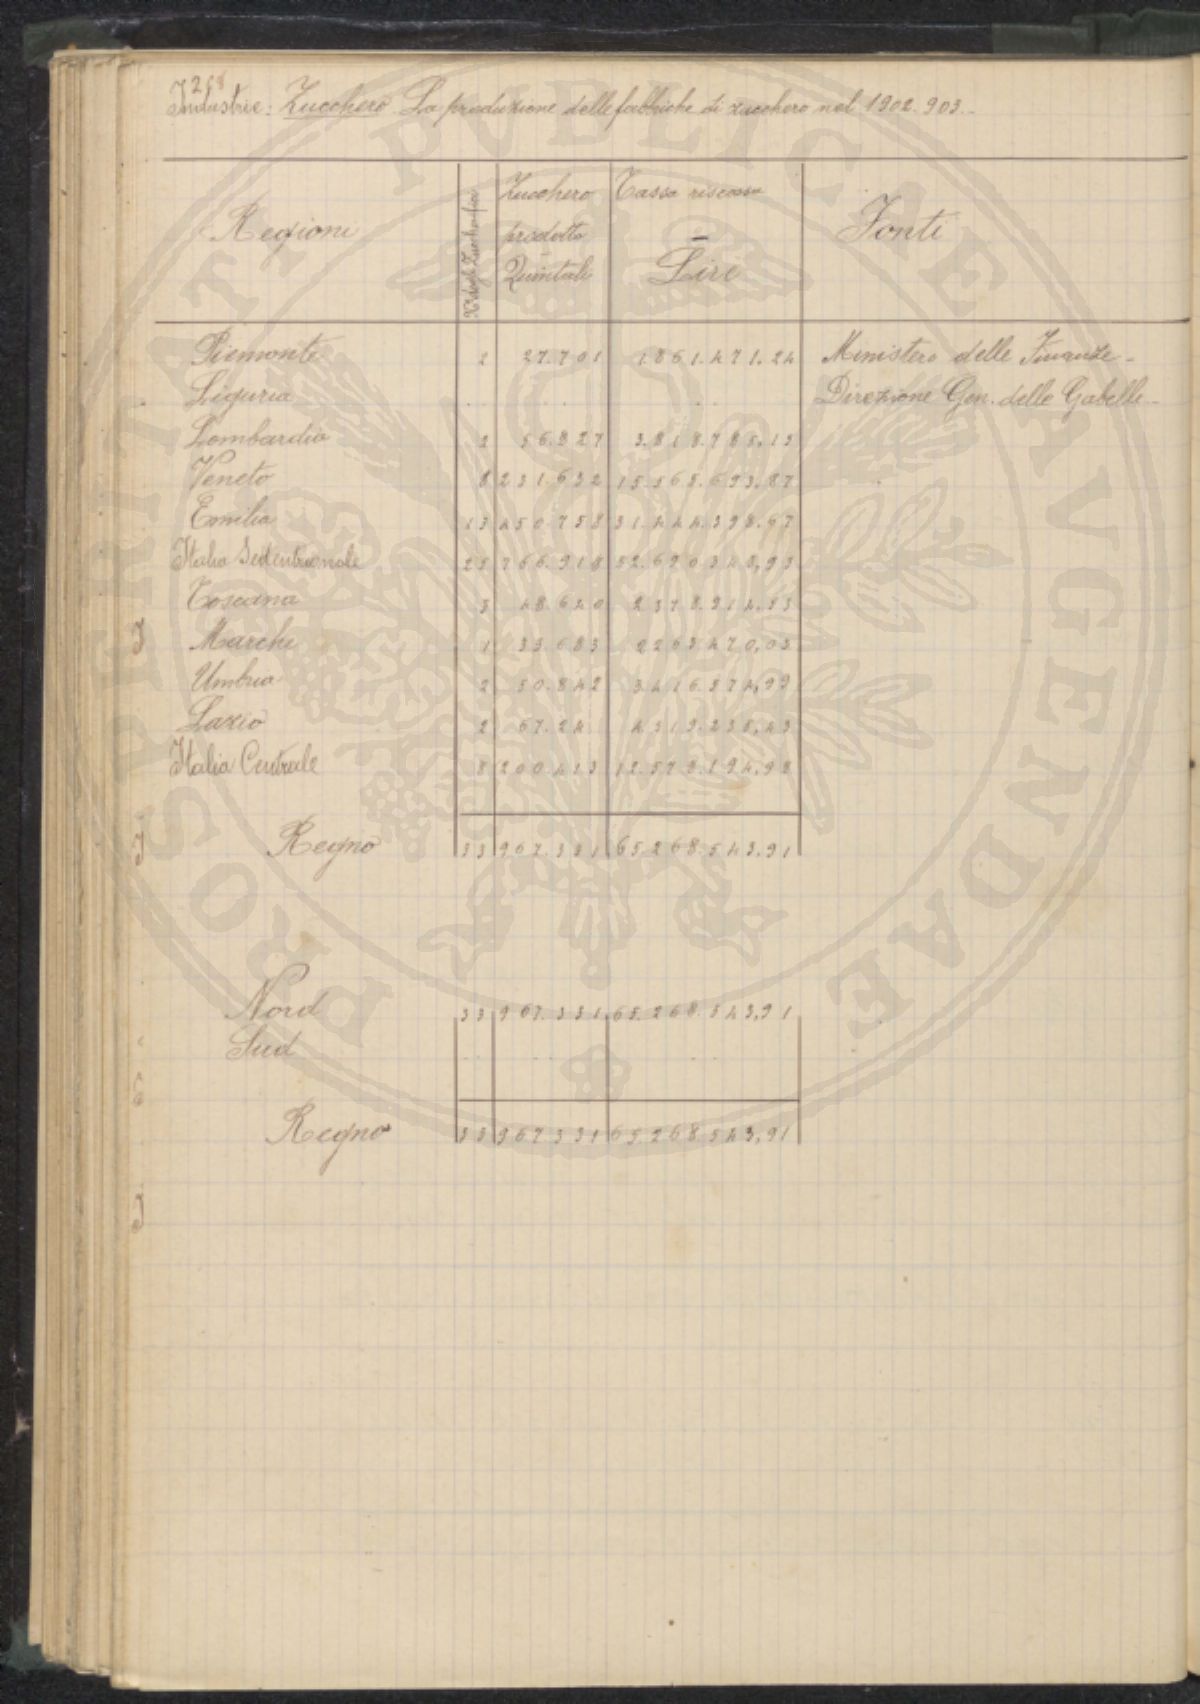 268
Industrie: Zucchero La produzione delle fabbriche di zucchero nel 1902.903.
Regioni
Zucchero prodotto Quintali
Tassa riscossa Lire
Fonti
Piemonte 2 27.701 1.861.471.24 Ministero delle Finanze -
Liguria . . . . . Direzione Gen. delle Gabelle -
Lombardia 2 56.827 3.818.785,13
Veneto 8 231.632 15.565.693,87
Emilia 13 450.758 31.444.398.67
Italia Settentrionale 25 766.918 52.690348,93
Toscana 3 48.640 2378.914.53
Marche 1 33.683 2263470,03
Umbria 2 50.842 3.416.574,99
Lazio 2 67.24 4319.235,43
Italia Centrale 8 200.413 12.578.194,98
Regno 33 967.331 65268.543.91
Nord 33 967.331 65.268.543,91
Sud . . . . .
Regno 33 967331 65268.543,91
PROSPERITATI PUBLICAE AVGENDAE